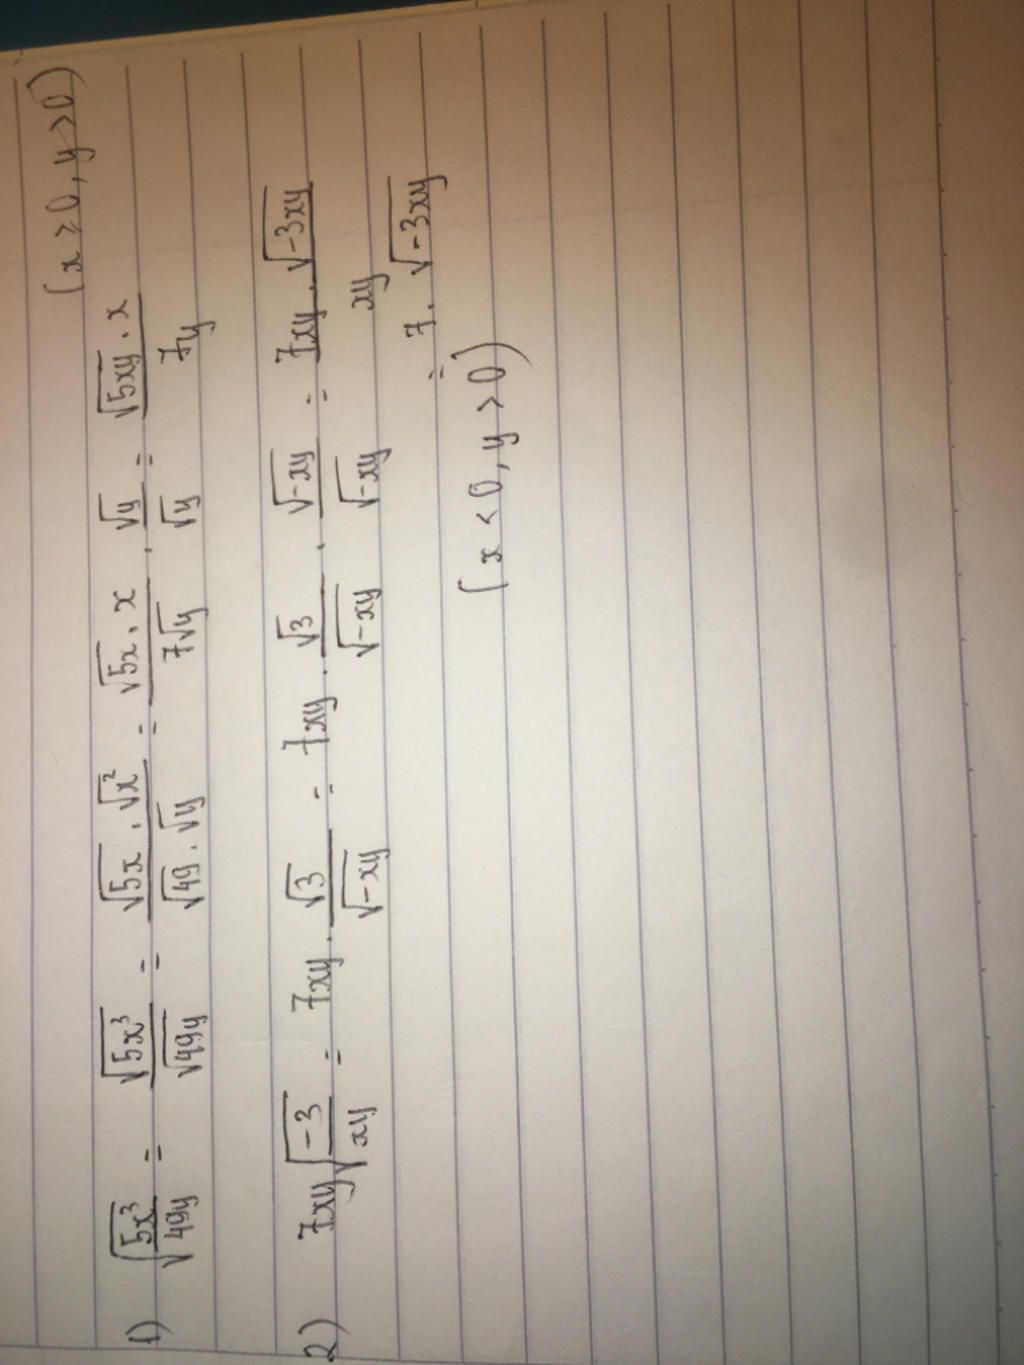 (x ≥ 0, y > 0)
1) √(5x³/49y) = √(5x³)/√(49y) = (√(5x) . √(x²))/(√49 . √y) = (√(5x) . x)/(7√y) . √y/√y = (√(5xy) . x)/(7y)
2) 7xy√(-3/xy) = 7xy . √3/√(-xy) = 7xy . √3/√(-xy) . √(-xy)/√(-xy) = (7xy . √(-3xy))/(xy)
= 7 . √(-3xy)
(x < 0, y > 0)